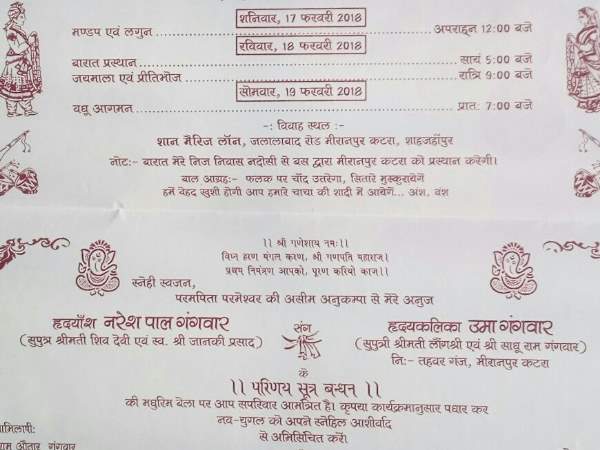 शनिवार, 17 फरवरी 2018
मण्डप एवं लगुन ........ अपराहन 12:00 बजे
रविवार, 18 फरवरी 2018
बारात प्रस्थान ........ सायं 5:00 बजे
जयमाला एवं प्रीतिभोज ........ रात्रि 9:00 बजे
सोमवार, 19 फरवरी 2018
वधू आगमन ........ प्रातः 7:00 बजे
-: विवाह स्थल :-
शान मैरिज लॉन, जलालाबाद रोड मीरानपुर कटरा, शाहजहाँपुर
नोटः- बारात मेरे निज निवास नदोसी से बस द्वारा मीरानपुर कटरा को प्रस्थान करेगी।
बाल आग्रहः- फलक पर चाँद उतरेगा, सितारे मुस्कुरायेगें
हमें बेहद खुशी होगी आप हमारे चाचा की शादी में आयेगें... अंश, वंश
।। श्री गणेशाय नमः।।
विघ्न हरण मंगल करण, श्री गणपति महाराज।
प्रथम निमंत्रण आपको, पूरण करियो काज।।
स्नेही स्वजन,
परमपिता परमेश्वर की असीम अनुकम्पा से मेरे अनुज
हृदयाँश नरेश पाल गंगवार
(सुपुत्र श्रीमती शिव देवी एवं स्व. श्री जानकी प्रसाद)
संग
हृदयकलिका उमा गंगवार
(सुपुत्री श्रीमती लौंगश्री एवं श्री साधू राम गंगवार)
निः- तहवर गंज, मीरानपुर कटरा
के
।। परिणय सूत्र बन्धन ।।
की मधुरिम बेला पर आप सपरिवार आमंत्रित है। कृपया कार्यक्रमानुसार पधार कर
नव-युगल को अपने स्नेहिल आशीर्वाद
से अभिसिंचित करें।
राम औतार गंगवार